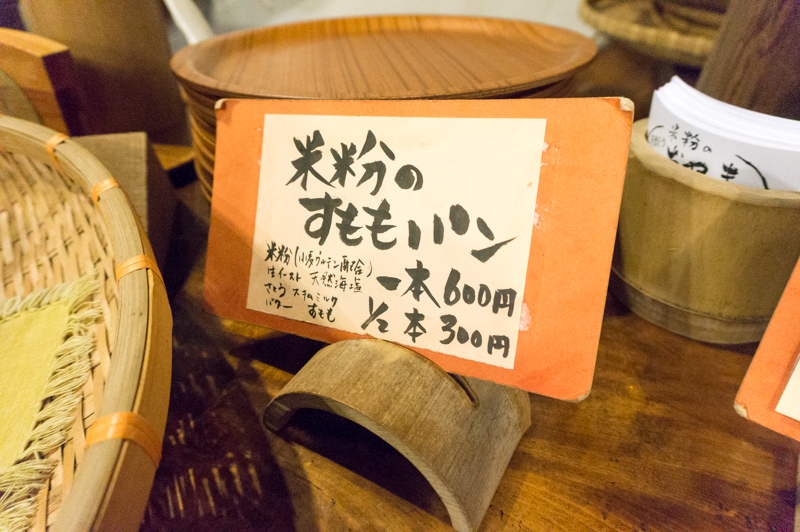 米粉の
すももパン
米粉(小麦グルテン配合)
生イースト 天然海塩
さとう スキムミルク
バター すもも
一本 600円
1/2本 300円
米粉の
おやき